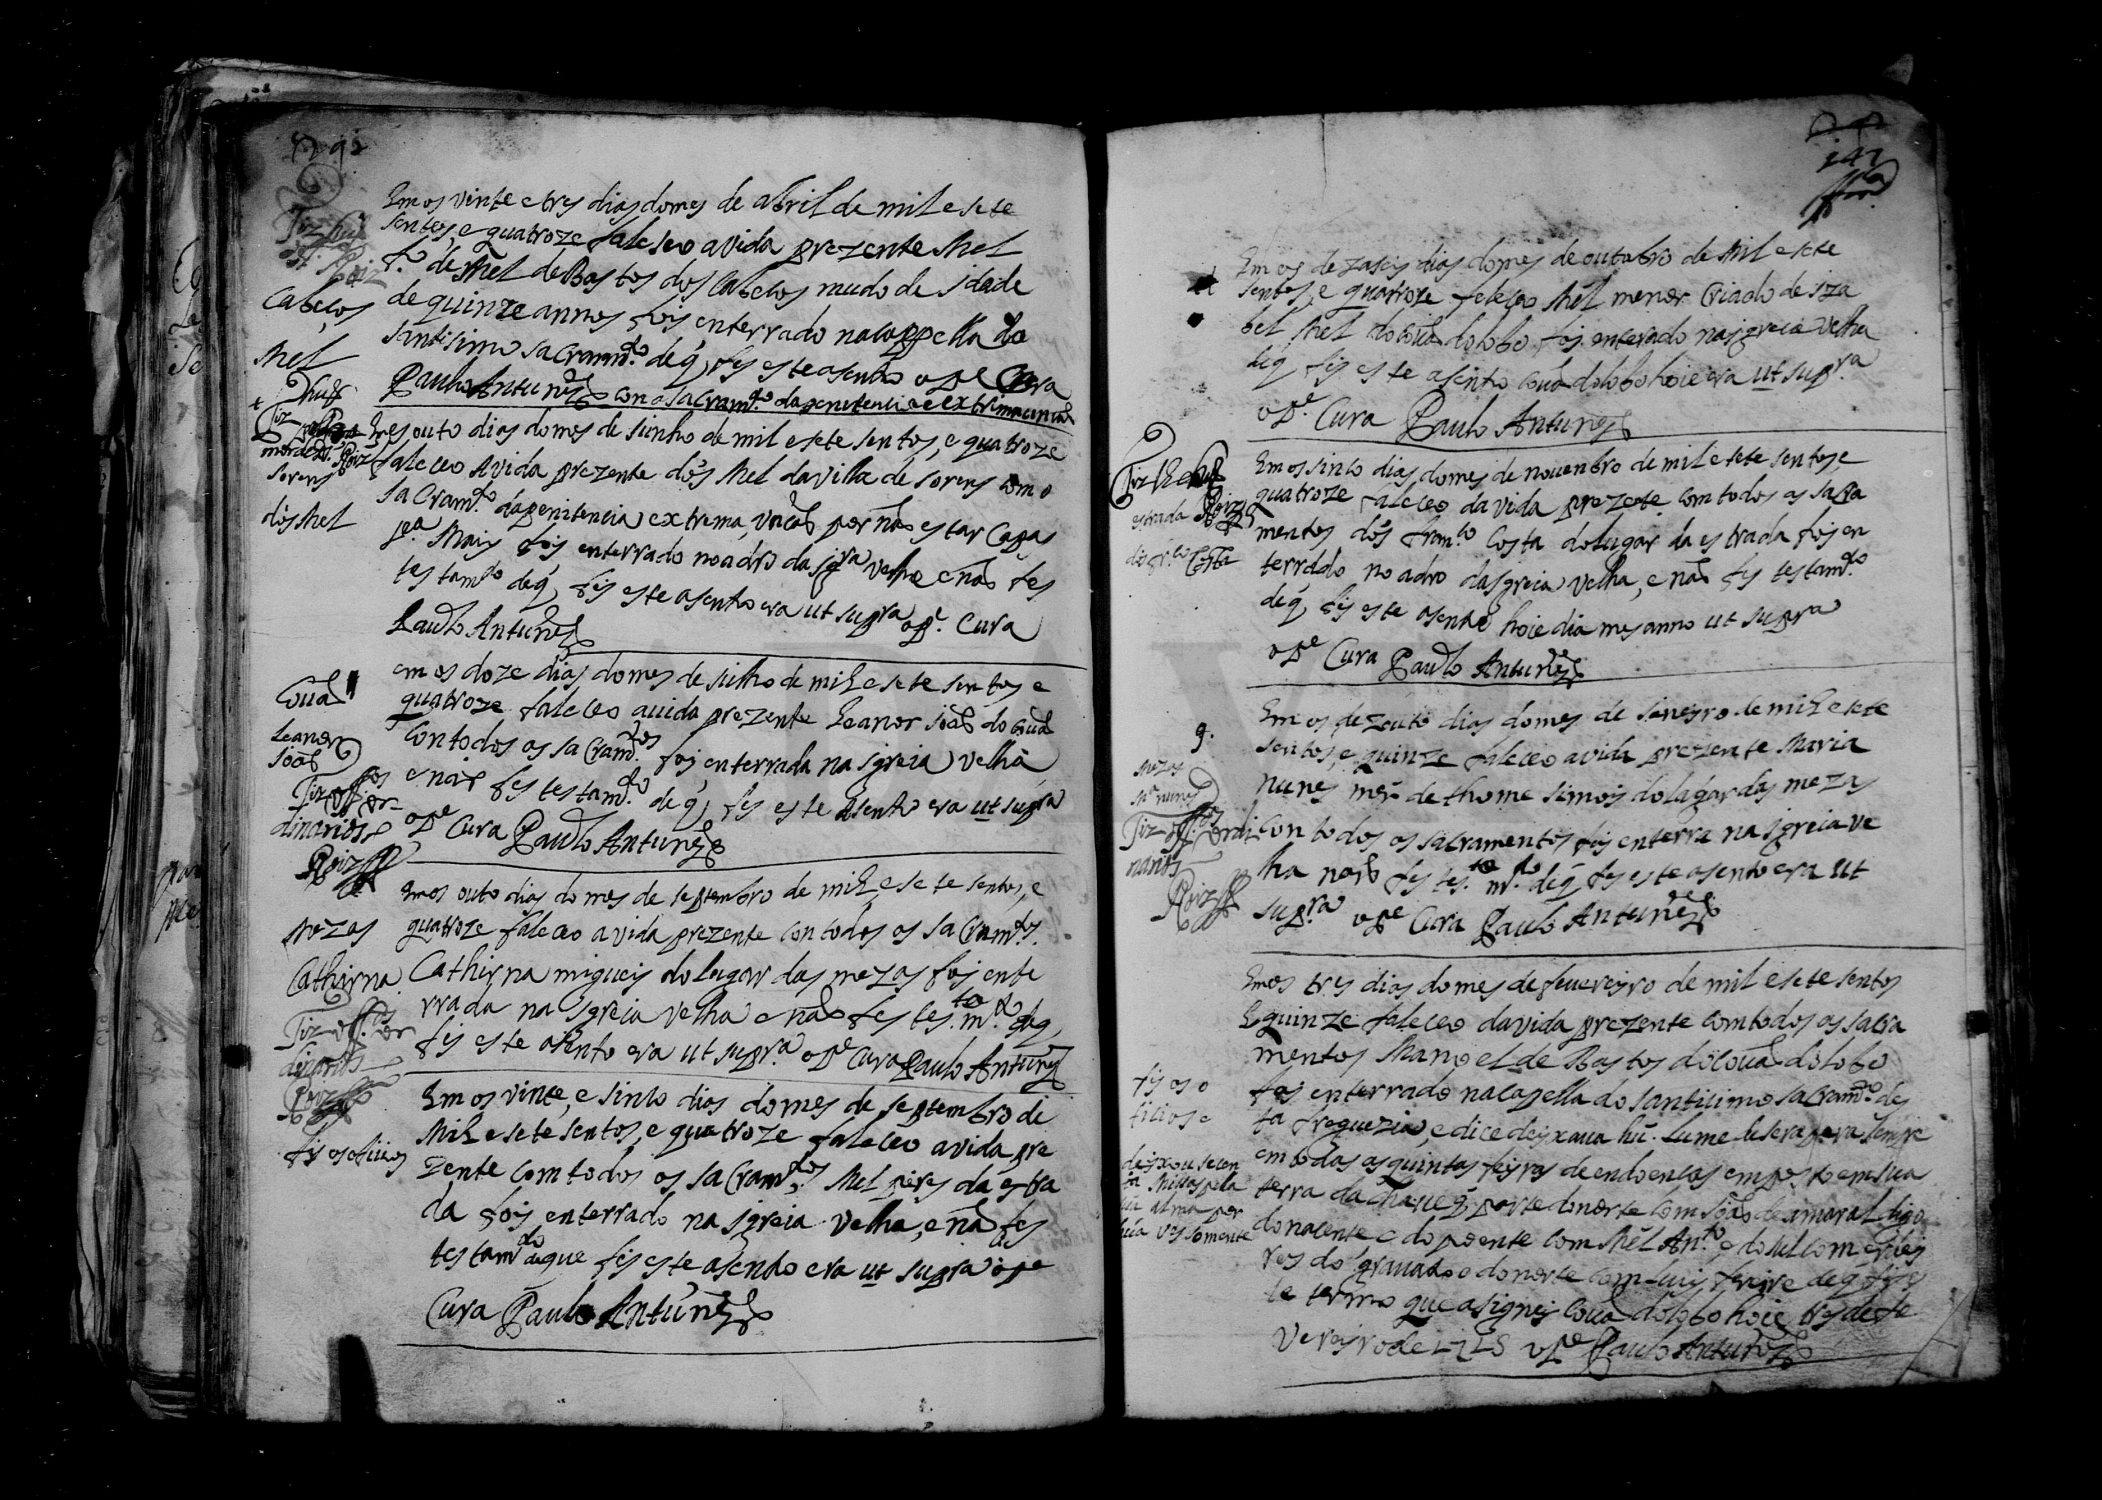 Emos vinte e tres dias domes de abril de mil e sete
sentos, e quatroze faleseo avida prezente Mel
fo. de Mel de Bastos dos Cabesos mudo de idade
de quinze annos fois enterrado nacappella do
santisimo sacramto. de q̃ fis este asento o pe Cura
Paulo Antunes con o sacramto. da penitencia e extrima uncaõ
Cabesos
Mel
Emes outo dias domes de Junho de mil e sete sentos, e quatroze
faleceo avida prezente dõs Mel davilla de sorens com o
sacramto. da penitencia extrema, uncaõ por naõ estar Capas
pa. Mais fois enterrado noadro da Igra velha e naõ fes
testamto. de q̃ fis este asento era ut supra o pe. Cura
Paulo Antunes
sorens
dõs Mel
emos doze dias domes de julho de mil e sete sentos e
quatroze faleceo avida prezente Leanor joaõ do Couaõ
Contodos os sacramtos. foj enterrada na Igreia velha
e naõ fes testamto. de q̃ fis este asento era ut supra
o pe Cura Paulo Antunes
Couaõ
Leanor
joaõ
Fiz offos or
dinarios
Roiz
Emos outo dias domes de septembro de mil, e sete sentos, e
quatroze faleceo avida prezente contodos os sacramtos.
Cathirna migueis do lugar das mezas foj ente
rrada na Igreia velha e naõ fes tes.ta mto. deq̃
fis este asento era ut supra o pe Cura Paulo Antunes
Mezas
Cathirna
Fiz offos or
dinarios
Roiz
Emos vinte, e sinto dias domes de septembro de
Mil e sete sentos, e quatroze faleceo avida pre
zente comtodos os sacramtos. Mel pires da estra
da fois enterrado na Igreia velha, e naõ fes
testamto deque fis este asento era ut supra o pe
Cura Paulo Antunes
fis os oficios
247
Emos dezaseis dias domes de outubro de Mil e sete
sentos, e quatroze faleceo Mel menor Criado de iza
bel Mel do Couaõ dolobo foj enterado naigreia velha
deq̃ fis este asento Couaõ dolobo hoie era ut supra
o pe. Cura Paulo Antunes
Emossinto dias domes de nouenbro de mil e sete sentos, e
quatroze faleceo da vida prezente comtodos os sacra
mentos dõs franco Costa dolugar da estrada fois en
terrado no adro da Igreia velha, e naõ fis testamto.
deq̃ fis este asento hoie dia mes anno ut supra
o pe Cura Paulo Antunes
estrada
Costa
Emos dezouto dias domes de janeyro de mil e sete
sentos, e quinze faleceo avida prezente Maria
nunes mer. de thome simois do lagar das mezas
contodos os sacramentos foj enterra na Igreia ve
lha naõ fis tes.ta mto. deq̃ fis este asento era ut
supra o pe Cura Paulo Antunes
9.
Mezas
Ma nunes
Fiz offos ordi
narios
Roiz
Emos tres dias domes de feuereyro de mil e sete sentos
E quinze faleceo davida prezente comtodos os sacra
mentos Manoel de Bastos do Couaõ dolobo
foj enterrado nacapella do santicimo sacramto. des
ta freguezia, e dice deyxaua hũ. lume pera sempre
em todas as quintas feyras de endoencas em sua
terra da parte donorte com joaõ de amaral digo
donacente e do poente com Mel Anto. e dosul com
res do grauato e donorte com luis freire de q̃ fis es
te termo que asignei Couaõ dolobo hoie tres de fe
vereyro de 1715 o pe Paulo Antunes
fis os o
ficios e
deixou secen
ta Missas pela
sua alma por
hũa ves somente